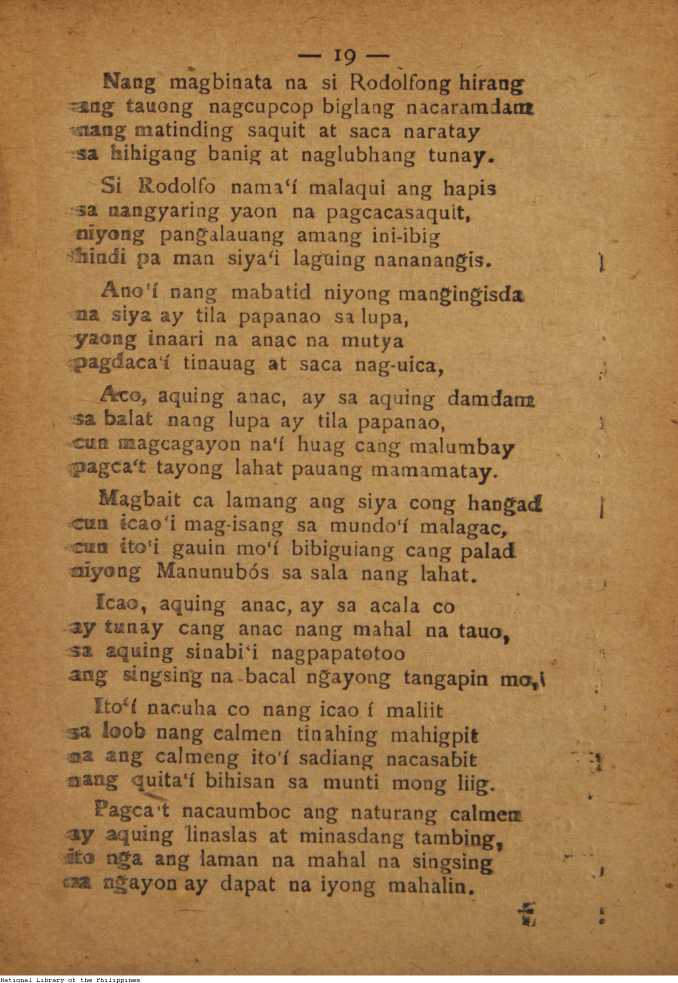 — 19 —
Nang magbinata na si Rodolfong hirang
ang tauong nagcupcop biglang nacaramdam
nang matinding saquit at saca naratay
sa hihigang banig at naglubhang tunay.
Si Rodolfo nama‘í malaqui ang hapis
sa nangyaring yaon na pagcacasaquit,
niyong pangalauang amang ini-ibig
hindi pa man siya‘i laguing nananangis.
Ano‘í nang mabatid niyong mang̃ing̃isda
na siya ay tila papanao sa lupa,
yaong inaari na anac na mutya
pagdaca‘í tinauag at saca nag-uica,
Aco, aquing anac, ay sa aquing damdam
sa balat nang lupa ay tila papanao,
cun magcagayon na‘í huag cang malumbay
pagca‘t tayong lahat pauang mamamatay.
Magbait ca lamang ang siya cong hang̃ad
cun icao‘i mag-isang sa mundo‘í malagac,
cun ito‘i gauin mo‘í bibiguiang cang palad
niyong Manunubós sa sala nang lahat.
Icao, aquing anac, ay sa acala co
ay tunay cang anac nang mahal na tauo,
sa aquing sinabi‘i nagpapatotoo
ang singsing na bacal ng̃ayong tangapin mo,
Ito‘í nacuha co nang icao í maliit
sa loob nang calmen tinahing mahigpit
na ang calmeng ito‘í sadiang nacasabit
nang quita‘í bihisan sa munti mong liig.
Pagca‘t nacaumboc ang naturang calmen
ay aquing linaslas at minasdang tambing,
ito nga ang laman na mahal na singsing
na ng̃ayon ay dapat na iyong mahalin.
National Library of the Philippines